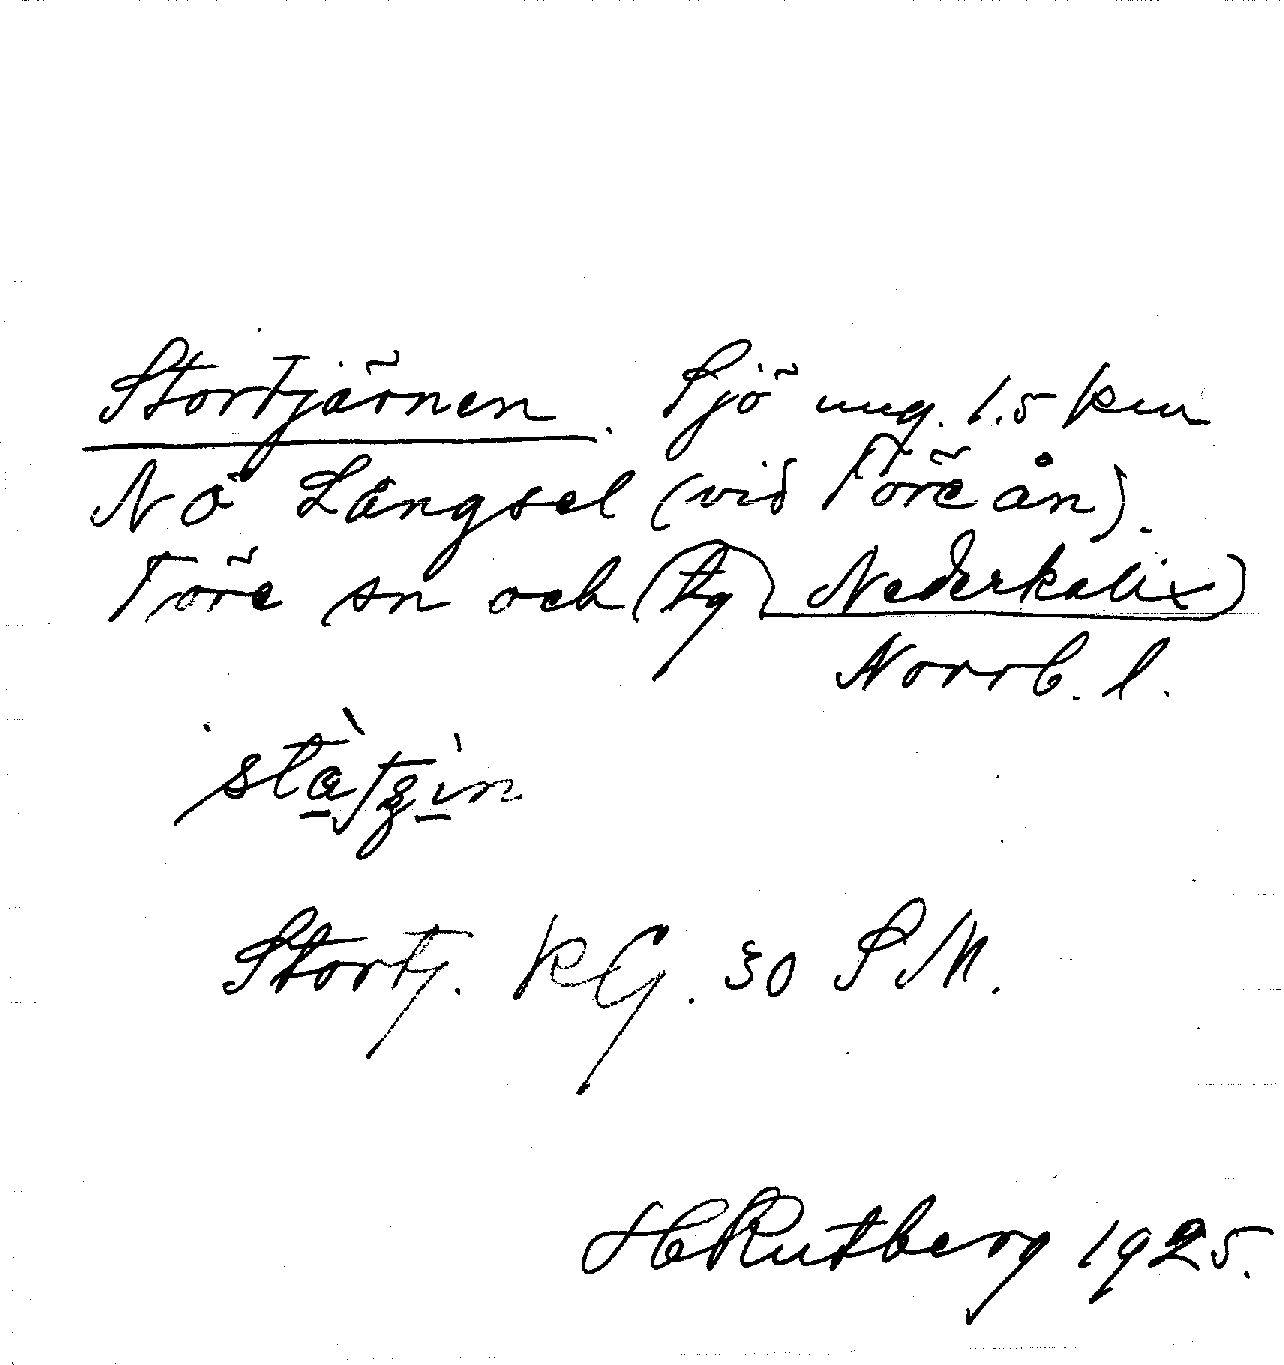 Stortjärnen. Sjö ung. 1.5 km
NÖ Långsel (vid Töre ån).
Töre sn och (tg Nederkalix)
Norrb. l.
Stortj. KG. 30 S M.
H Rutberg 1925.